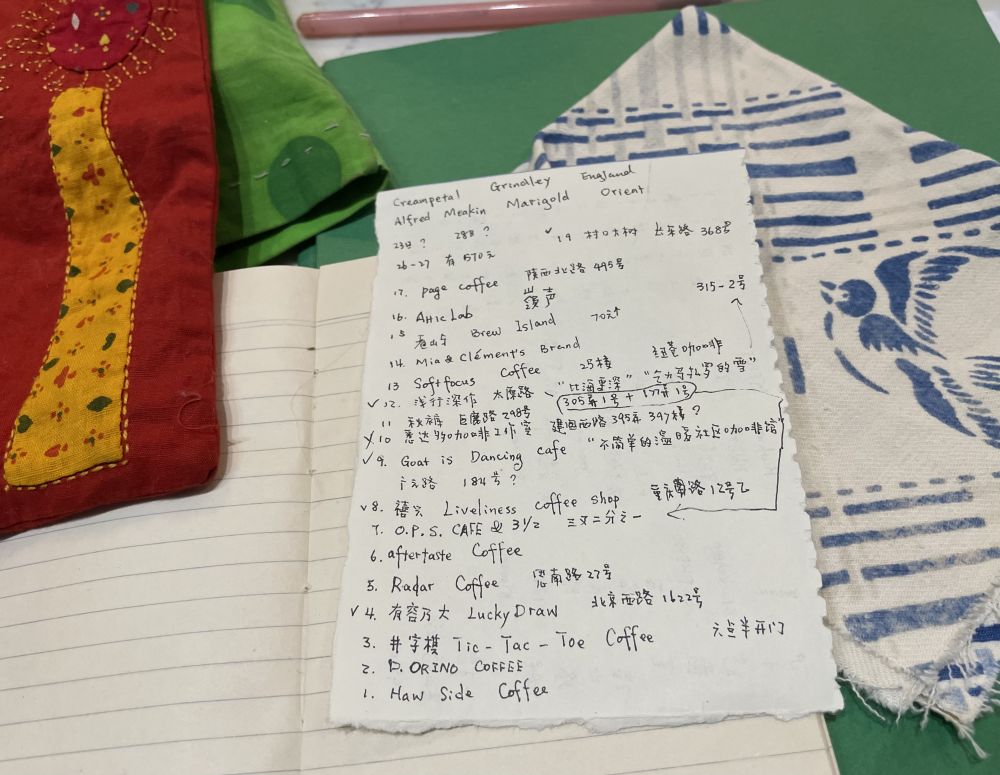 Creampetal Grindley England
Alfred Meakin Marigold Orient
23日? 28日?
✓19 村口大树 长乐路 368号
26-27 有 570元
17. page coffee 陕西北路 495号
16. Attic Lab
315-2号
15 Brew Island 70元↑
14. Mia & Clément's Brand
13 Softfocus Coffee 25楼 纽巷咖啡
✓12. 洋行深作 太原路 "比海更深" "乞力马扎罗的雪"
305弄1号 + 177弄1号
11 秋裤 巨鹿路 298号 建国西路 395弄 397楼?
10 悉达多咖啡工作室 "不简单的温暖社区咖啡馆"
✓9. Goat is Dancing cafe
路 184号?
✓8. 禧兴 Liveliness coffee shop 重庆南路 12号乙
7. O.P.S. CAFE & 3 1/2 三又二分之一
6. aftertaste Coffee
5. Radar Coffee 思南路 27号
✓4. 有容乃大 Lucky Draw 北京西路 1622号
3. 井字棋 Tic-Tac-Toe Coffee 六点半开门
2. ORINO COFFEE
1. Haw Side Coffee